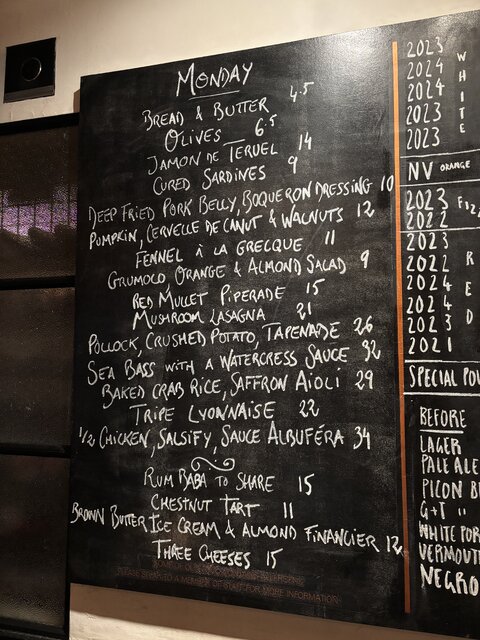 MONDAY
BREAD & BUTTER 4.5
OLIVES 6.5
JAMON DE TERUEL 14
CURED SARDINES 9
DEEP FRIED PORK BELLY, BOQUERON DRESSING 10
PUMPKIN, CERVELLE DE CANUT & WALNUTS 12
FENNEL À LA GRECQUE 11
GRUMOLO, ORANGE & ALMOND SALAD 9
RED MULLET PIPERADE 15
MUSHROOM LASAGNA 21
POLLOCK, CRUSHED POTATO, TAPENADE 26
SEA BASS WITH A WATERCRESS SAUCE 32
BAKED CRAB RICE, SAFFRON AIOLI 29
TRIPE LYONNAISE 22
1/2 CHICKEN, SALSIFY, SAUCE ALBUFÉRA 34
RUM BABA TO SHARE 15
CHESTNUT TART 11
BROWN BUTTER ICE CREAM & ALMOND FINANCIER 12
THREE CHEESES 15
PLEASE SPEAK TO A MEMBER OF STAFF FOR MORE INFORMATION
WHITE
2023
2024
2024
2023
2023
NV ORANGE
2023
2022
RED
2023
2022
2024
2024
2023
2021
SPECIAL POU
BEFORE
LAGER
PALE ALE
PICON B
G+T "
WHITE POR
VERMOUT
NEGRO